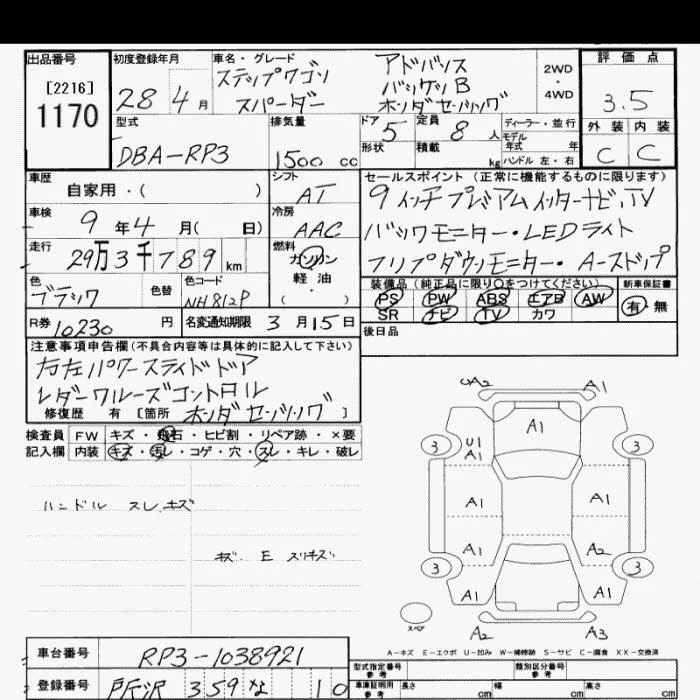 出品番号
[2216]
1170
初度登録年月
28年4月
車名・グレード
ステップワゴン
スパーダー
アドバンス
パッケジB
ホンダセーシング
2WD
・
4WD
評価点
3.5
外装 内装
C C
型式
DBA-RP3
排気量
1500 cc
ドア
5
形状
定員
8 人
積載
kg
ディーラー・並行
モデル
年式 年
ハンドル 左・右
車歴
自家用・( )
シフト
AT
車検
9年4月( 日)
冷房
AAC
走行
29万3千789km
燃料
ガソリン
軽油
・( )
色
ブラック
色替
色コード
NH812P
R券
10230円
名変通知期限 3月15日
セールスポイント(正常に機能するものに限ります)
9インチプレミアムインターナビ,TV
バックモニター・LEDライト
フリップダウンモニター・A-ストップ
装備品(純正品に限り○をつけてください)
PS PW ABS エアB AW
SR ナビ TV カワ
新車保証書
有・無
後日品
注意事項申告欄(不具合内容等は具体的に記入して下さい)
右左パワースライドドア
レダークルーズコントロル
修復歴 有[箇所 ホンダセンシング]
検査員 FW キズ・飛石・ヒビ割・リペア跡・×要
記入欄 内装 キズ・汚レ・コゲ・穴・スレ・キレ・破レ
ハンドル スレ、キズ
キズ、E スリキズ
UA2 A1
A1
3 U1 3
A1
A1 A1
A1 A2
3 3
A1 A1
スペア
A2 A3
A-キズ E-エクボ U-凹み W-補修跡 S-サビ C-腐食 XX-交換済
車台番号 RP3-1038921
登録番号 所沢 359 な 10
型式指定番号
参考
類別区分番号
参考
車庫証明用
参考
長さ cm 幅 cm 高さ cm